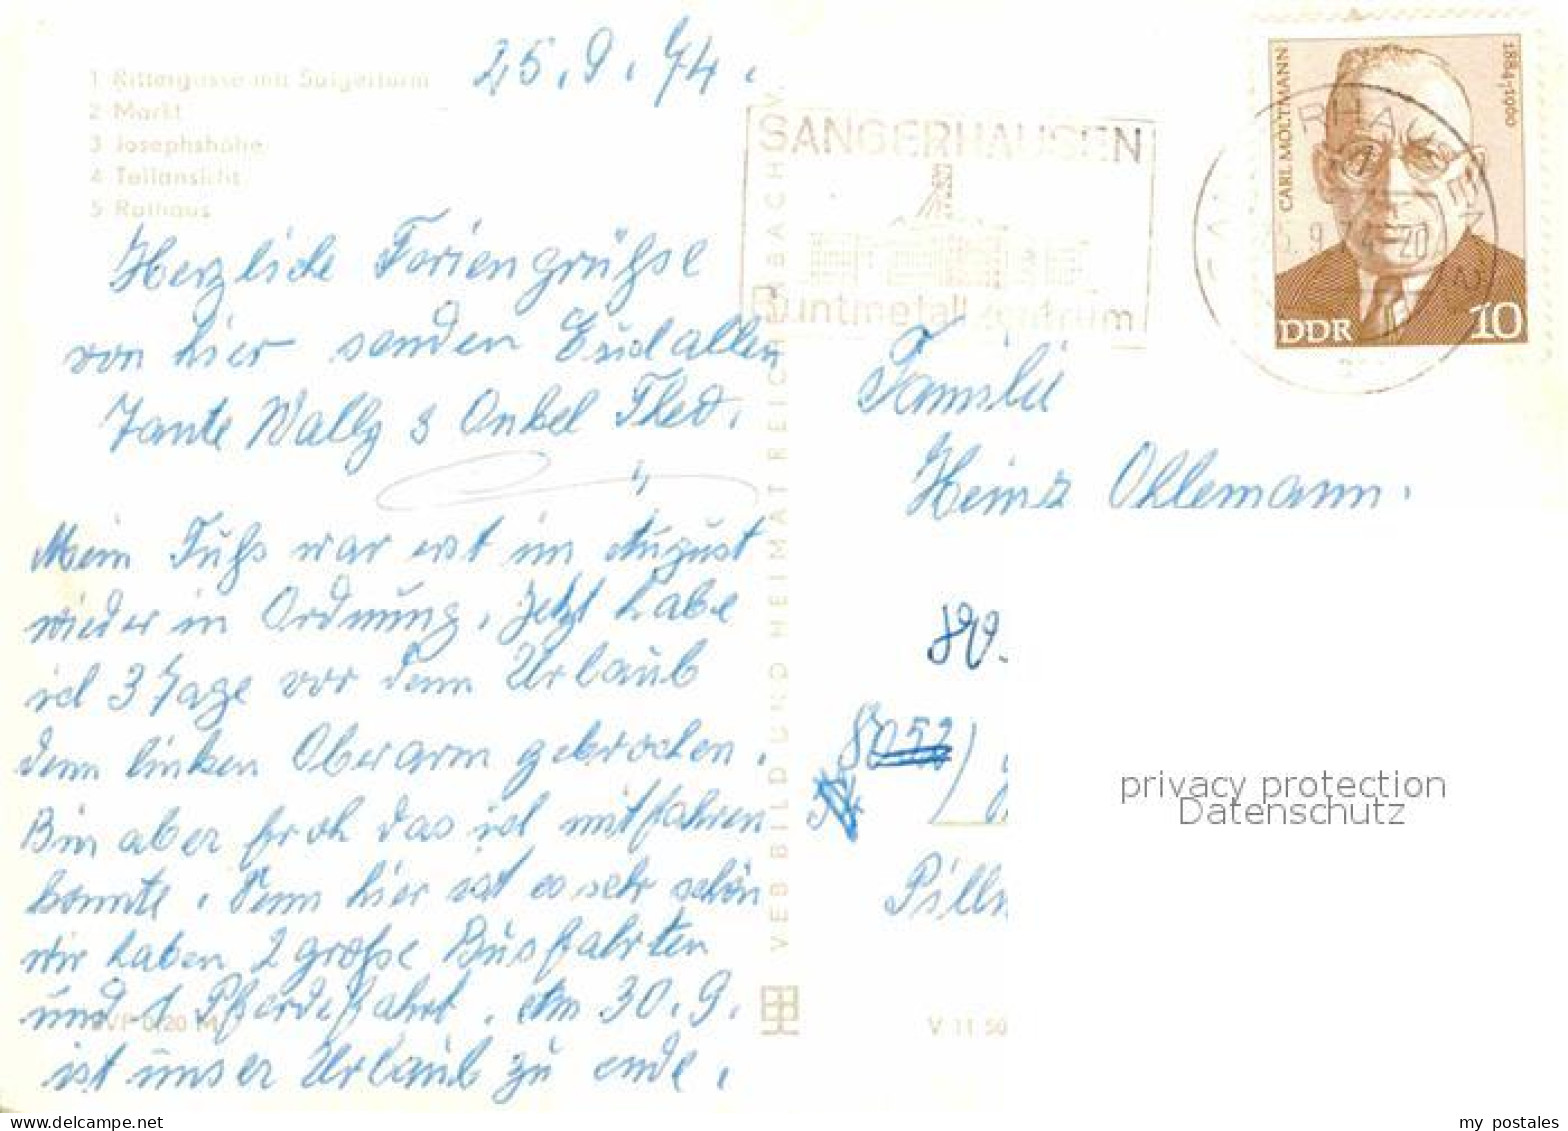 25.9.74.
1 Rittergasse mit Saigerturm
2 Markt
3 Josephshöhe
4 Teilansicht
5 Rathaus
Herzliche Feriengrüße
von hier senden Euch allen
Tante Wally & Onkel Theo.
Mein Fuß war erst im August
wieder in Ordnung. Jetzt habe
ich 3 Tage vor dem Urlaub
den linken Oberarm gebrochen.
Bin aber froh das ich mitfahren
konnte. Denn hier ist es sehr schön
wir haben 2 große Busfahrten
und 1 Pferdefahrt. Am 30.9.
ist unser Urlaub zu ende.
EVP 0,20 M
VEB BILD UND HEIMAT REICHENBACH V.
SANGERHAUSEN
Buntmetallzentrum
CARL MOLTMANN
1884-1960
DDR 10
Familie
Heinz Ohlemann.
80.
8052)
Pilln
V 11 50
privacy protection
Datenschutz
my postales